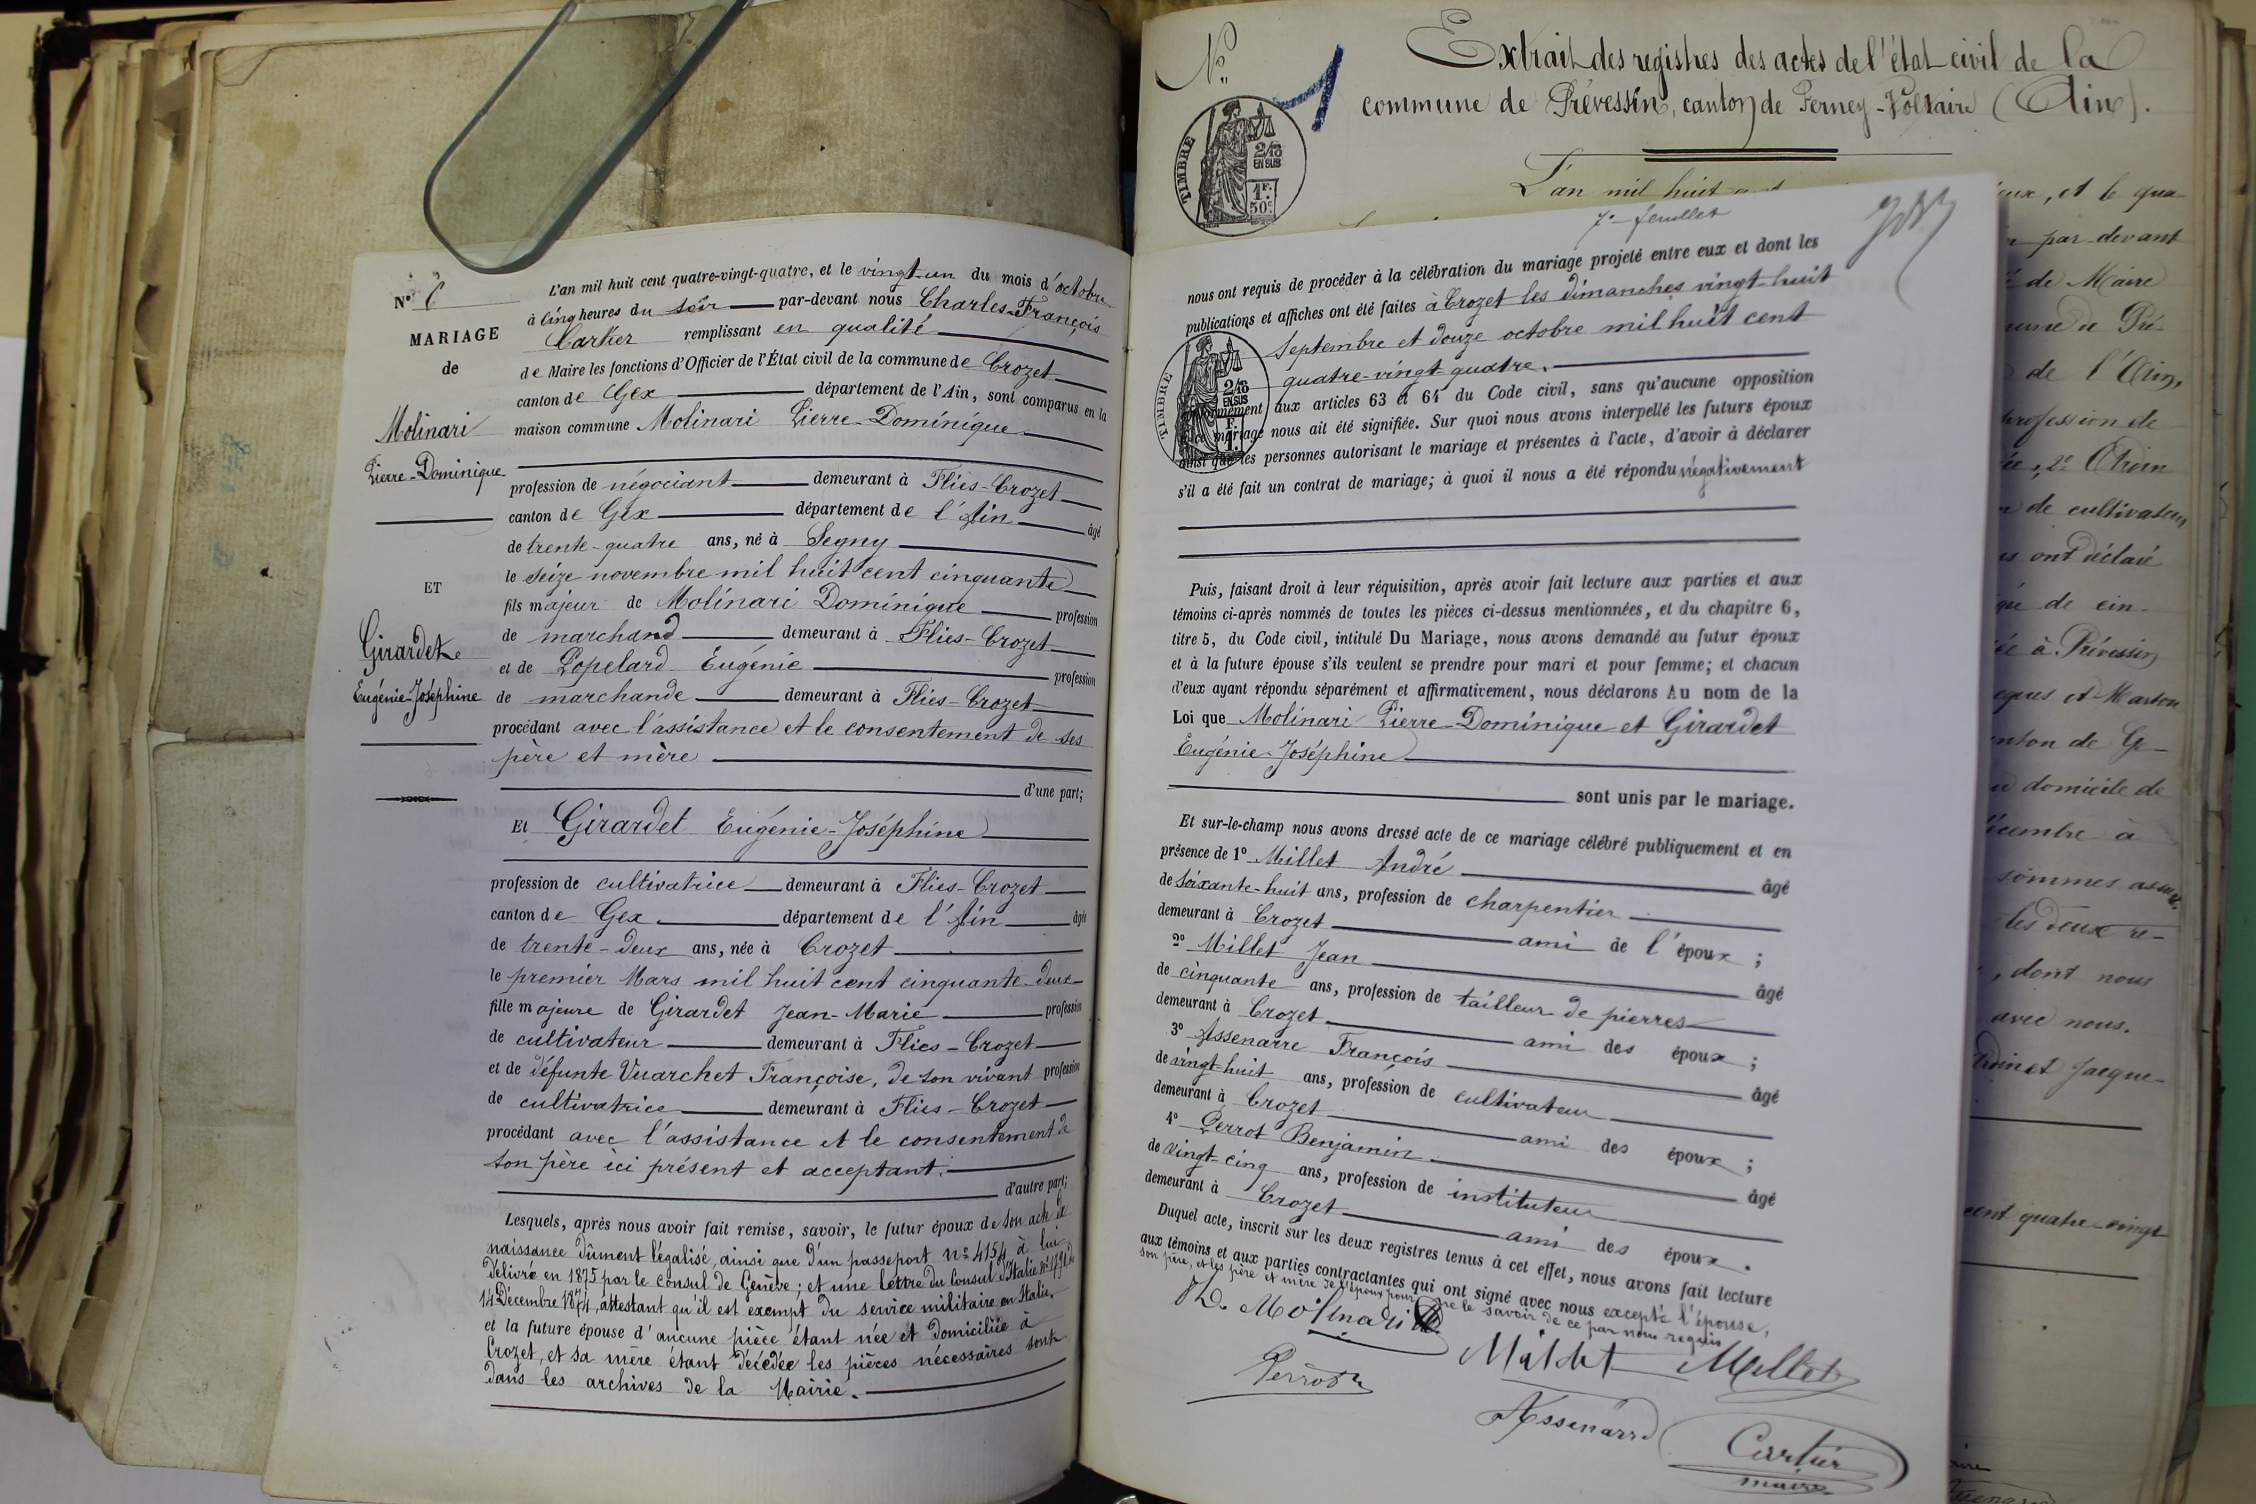 N° 6
MARIAGE
de
Molinari
Pierre-Dominique
ET
Girardet
Eugénie-Joséphine
L'an mil huit cent quatre-vingt-quatre, et le vingt-un du mois d'octobre
à cinq heures du soir par-devant nous Charles-François
Cartier remplissant en qualité
de Maire les fonctions d'Officier de l'État civil de la commune de Crozet
canton de Gex département de l'Ain, sont comparus en la
maison commune Molinari Pierre-Dominique
profession de négociant demeurant à Flies-Crozet
canton de Gex département de l'Ain âgé
de trente-quatre ans, né à Segny
le seize novembre mil huit cent cinquante
fils majeur de Molinari Dominique profession
de marchand demeurant à Flies-Crozet
et de Lopelard Eugénie profession
de marchande demeurant à Flies-Crozet
procédant avec l'assistance et le consentement de ses
père et mère
d'une part;
Et Girardet Eugénie-Joséphine
profession de cultivatrice demeurant à Flies-Crozet
canton de Gex département de l'Ain âgée
de trente-deux ans, née à Crozet
le premier Mars mil huit cent cinquante-deux
fille majeure de Girardet Jean-Marie profession
de cultivateur demeurant à Flies-Crozet
et de défunte Vuarchet Françoise, de son vivant profession
de cultivatrice demeurant à Flies-Crozet
procédant avec l'assistance et le consentement de
son père ici présent et acceptant.
d'autre part;
Lesquels, après nous avoir fait remise, savoir, le futur époux de son acte de
naissance dûment légalisé, ainsi que d'un passeport n° 4154 à lui
délivré en 1875 par le consul de Genève; et une lettre du Consul d'Italie
14 Décembre 1874, attestant qu'il est exempt du service militaire en Italie.
et la future épouse d'aucune pièce étant née et domiciliée à
Crozet, et sa mère étant décédée les pièces nécessaires sont
dans les archives de la Mairie.
N° 1
Extrait des registres des actes de l'état civil de la
commune de Prévessin, canton de Ferney-Voltaire (Ain).
TIMBRE
2/10
EN SUS
1F.
50c
L'an mil huit
7e feuillet
nous ont requis de procéder à la célébration du mariage projeté entre eux et dont les
publications et affiches ont été faites à Crozet les dimanches vingt-huit
septembre et douze octobre mil huit cent
quatre-vingt-quatre.
TIMBRE
2/10
EN SUS
aux articles 63 à 64 du Code civil, sans qu'aucune opposition
à ce mariage nous ait été signifiée. Sur quoi nous avons interpellé les futurs époux
ainsi que les personnes autorisant le mariage et présentes à l'acte, d'avoir à déclarer
s'il a été fait un contrat de mariage; à quoi il nous a été répondu négativement
Puis, faisant droit à leur réquisition, après avoir fait lecture aux parties et aux
témoins ci-après nommés de toutes les pièces ci-dessus mentionnées, et du chapitre 6,
titre 5, du Code civil, intitulé Du Mariage, nous avons demandé au futur époux
et à la future épouse s'ils veulent se prendre pour mari et pour femme; et chacun
d'eux ayant répondu séparément et affirmativement, nous déclarons Au nom de la
Loi que Molinari Pierre-Dominique et Girardet
Eugénie-Joséphine
sont unis par le mariage.
Et sur-le-champ nous avons dressé acte de ce mariage célébré publiquement et en
présence de 1° Millet André âgé
de soixante-huit ans, profession de charpentier
demeurant à Crozet ami de l'époux;
2° Millet Jean âgé
de cinquante ans, profession de tailleur de pierres
demeurant à Crozet ami des époux;
3° Assenarre François âgé
de vingt-huit ans, profession de cultivateur
demeurant à Crozet ami des époux;
4° Perrot Benjamin âgé
de vingt-cinq ans, profession de instituteur
demeurant à Crozet ami des époux.
Duquel acte, inscrit sur les deux registres tenus à cet effet, nous avons fait lecture
aux témoins et aux parties contractantes qui ont signé avec nous excepté l'épouse,
son père, et les père et mère de l'époux pour ne le savoir de ce par nous requis
P.D. Molinari
Millet Millet
Perrot
Assenarre
Cartier
maire
et le qua-
par devant
de Maire
de Pré-
de l'Ain,
profession de
de cultivateur
ont déclaré
de cin-
à Prévessin
et Marion
canton de Ge-
domicile de
décembre à
sommes assu
les deux re-
, dont nous
avec nous.
Jacque-
cent quatre-vingt